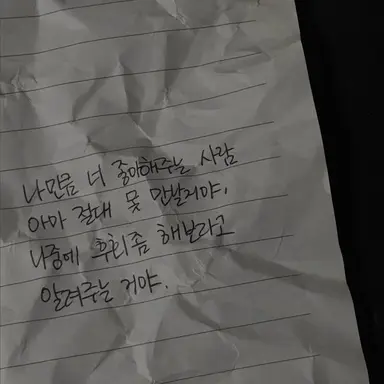 나만큼 너 좋아해주는 사람
아마 절대 못 만날거야.
나중에 후회좀 해보라고
알려주는 거야.